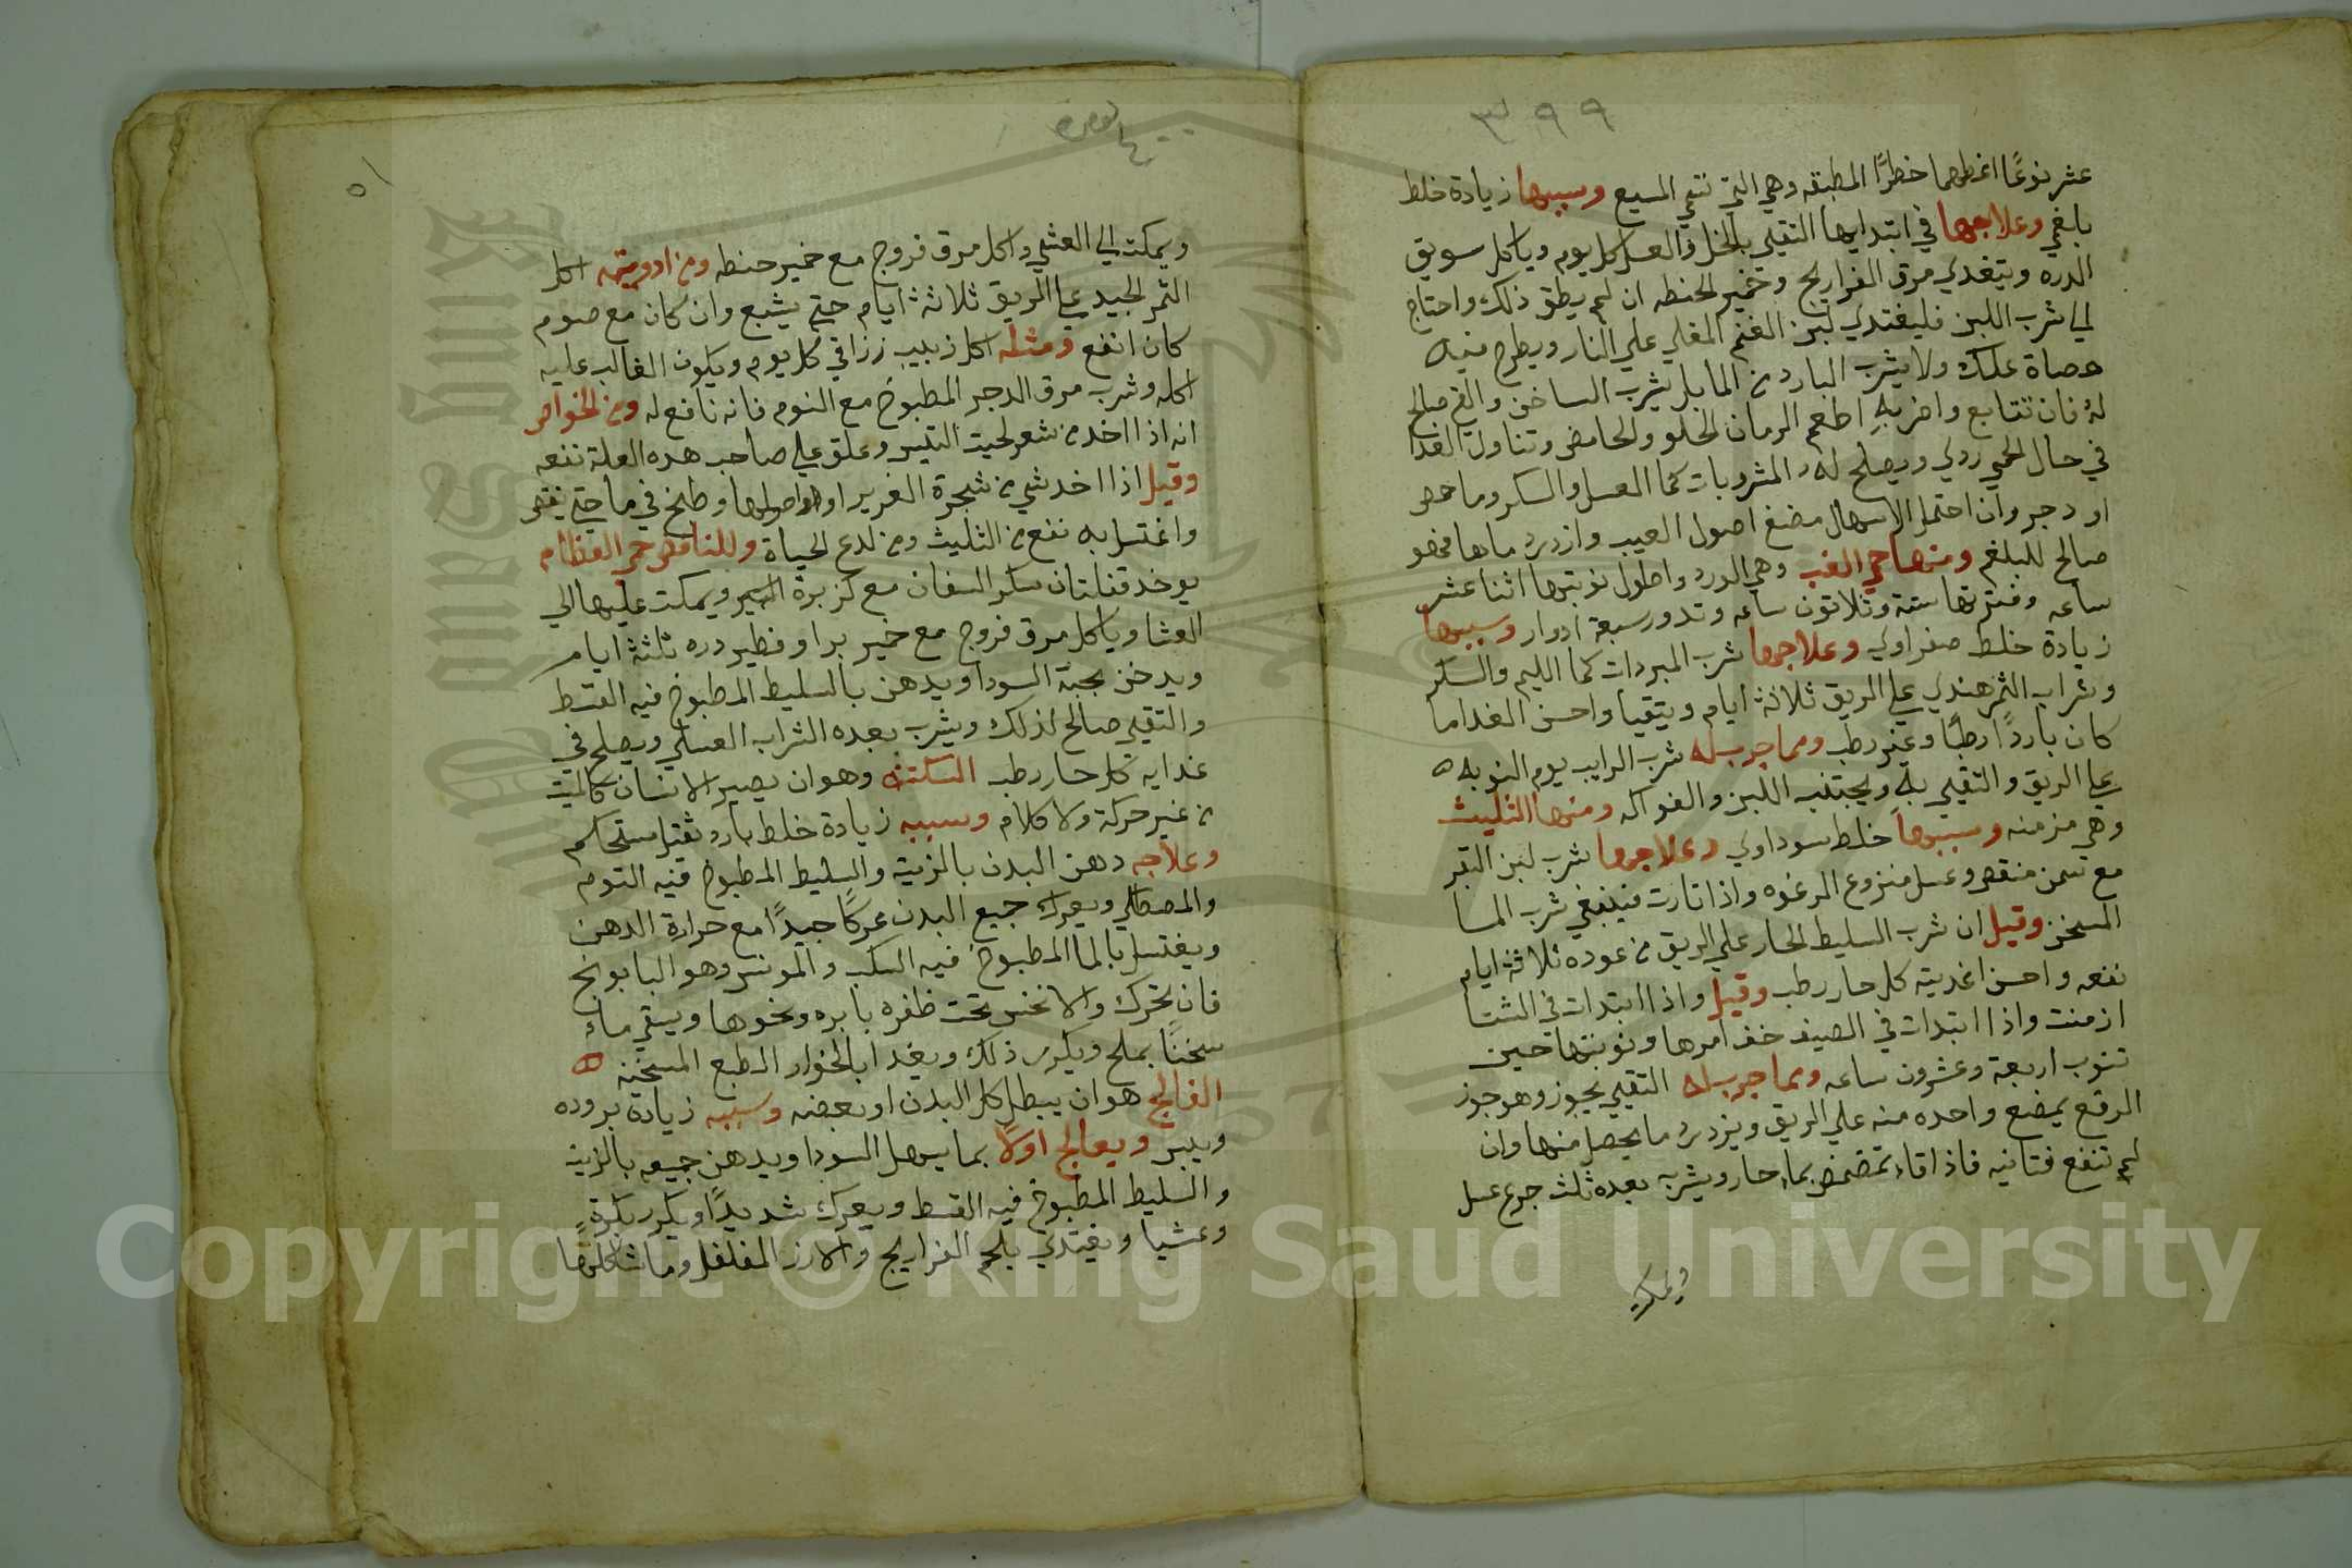 ٣٩٩
عشر نوعًا اعظمها خطرًا المطبقه وهي التي تتقي السبع وسببها زيادة خلط
بلغمي وعلاجها في ابتدايها التقيي بالخل والعسل كل يوم وياكل سويق
الدره ويتغدي مرق الفراريج وخمير الحنطه ان لم يطق ذلك واحتاج
الي شرب اللبن فليغتدي لبن الغنم المغلي علي النار ويطرح فيه
حصاة علك ولا يشرب البارد من الما بل يشرب الساخن والقي صالح
له فان تتابع واضر به اطعم الرمان الحلو والحامض وتناول الغدا
في حال الحمي ردي ويصلح له من المشروبات كما العسل والسكر وما حمص
او دجر وان احتمل الاسهال مضغ اصول العبب وازدرد ماها فهو
صالح للبلغم ومنها حمي الغب وهي الورد واطول نوبتها اثنا عشر
ساعه وفترتها ستة وثلاثون ساعه وتدور سبعة ادوار وسببها
زيادة خلط صفراوي وعلاجها شرب المبردات كما الليم والسكر
وشراب الثمر هندي علي الريق ثلاثة ايام ويتقيا واحسن الغدا ما
كان باردًا رطبًا وغير رطب ومما جرب له شرب الرايب يوم النوبه
علي الريق والتقيي به ويجتنب اللبن والفواكه ومنها الثليث
وهي مزمنه وسببها خلط سوداوي وعلاجها شرب لبن البقر
مع سمن منقص وعسل منزوع الرغوه واذا ثارت فينبغي شرب الما
المسخن وقيل ان شرب السليط الحار علي الريق من عوده ثلاثة ايام
نفعه واحسن اغديته كل حار رطب وقيل واذا ابتدات في الشتا
ازمنت واذا ابتدات في الصيف خف امرها ونوبتها حين
تنوب اربعة وعشرون ساعه ومما جرب له التقيي بجوز وهو جوز
الرقع يمضغ واحده منه علي الريق ويزدرد ما يحصل منها وان
لم تنفع فثانيه فاذا قاء تمضمض بماء حار ويشرب بعده ثلث جرع عسل
ويمكث
٥١
ويمكث الي العشي واكل مرق فروج مع خمير حنطه ومن ادويته اكل
الثمر الجيد علي الريق ثلاثة ايام حتي يشبع وان كان مع صوم
كان انفع ومثله اكل زبيب رزاقي كل يوم ويكون الغالب عليه
اكله وشرب مرق الدجر المطبوخ مع الثوم فانه نافع له ومن الخواص
انه اذا اخد من شعر لحيت التيس وعلق علي صاحب هده العلة نفعه
وقيل اذا اخد شي من شجرة الغرير او اصولها وطبخ في ما حتي ينقص
واغتسل به نفع من الثليث ومن لدغ الحياة وللنافض حمي العظام
يوخد قفلتان سكر مع كزبرة البير ويمكث عليها الي
العشا وياكل مرق فروج مع خمير برا وفطير دره ثلثة ايام
ويدخن بحبة السودا ويدهن بالسليط المطبوخ فيه القسط
والتقيي صالح لذلك ويشرب بعده الشراب العسلي ويصلح في
غدايه كل حار رطب السكته وهو ان يصير الانسان كالميت
من غير حركة ولا كلام وسببه زيادة خلط بارد ثقيل مستحكم
وعلاجه دهن البدن بالزيت والسليط المطبوخ فيه الثوم
والمصطكي ويعرك جميع البدن عركًا جيدًا مع حرارة الدهن
ويغتسل بالما المطبوخ فيه السكب والمونس وهو البابونج
فان تحرك والا نخس تحت ظفره بابره ونحوها ويسقي ماء
سخنًا بملح ويكرر ذلك ويغدا بالحوار الطبع المسخنه
الفالج هو ان يبطل كل البدن او بعضه وسببه زيادة بروده
ويبس ويعالج اولًا بما يسهل السودا ويدهن جميعه بالزيت
والسليط المطبوخ فيه القسط ويعرك شديدًا ويكرر بكرةٍ
وعشيا ويغتدي بلحم الفراريج والارز المفلفل وما شاكلها
Copyright © King Saud University